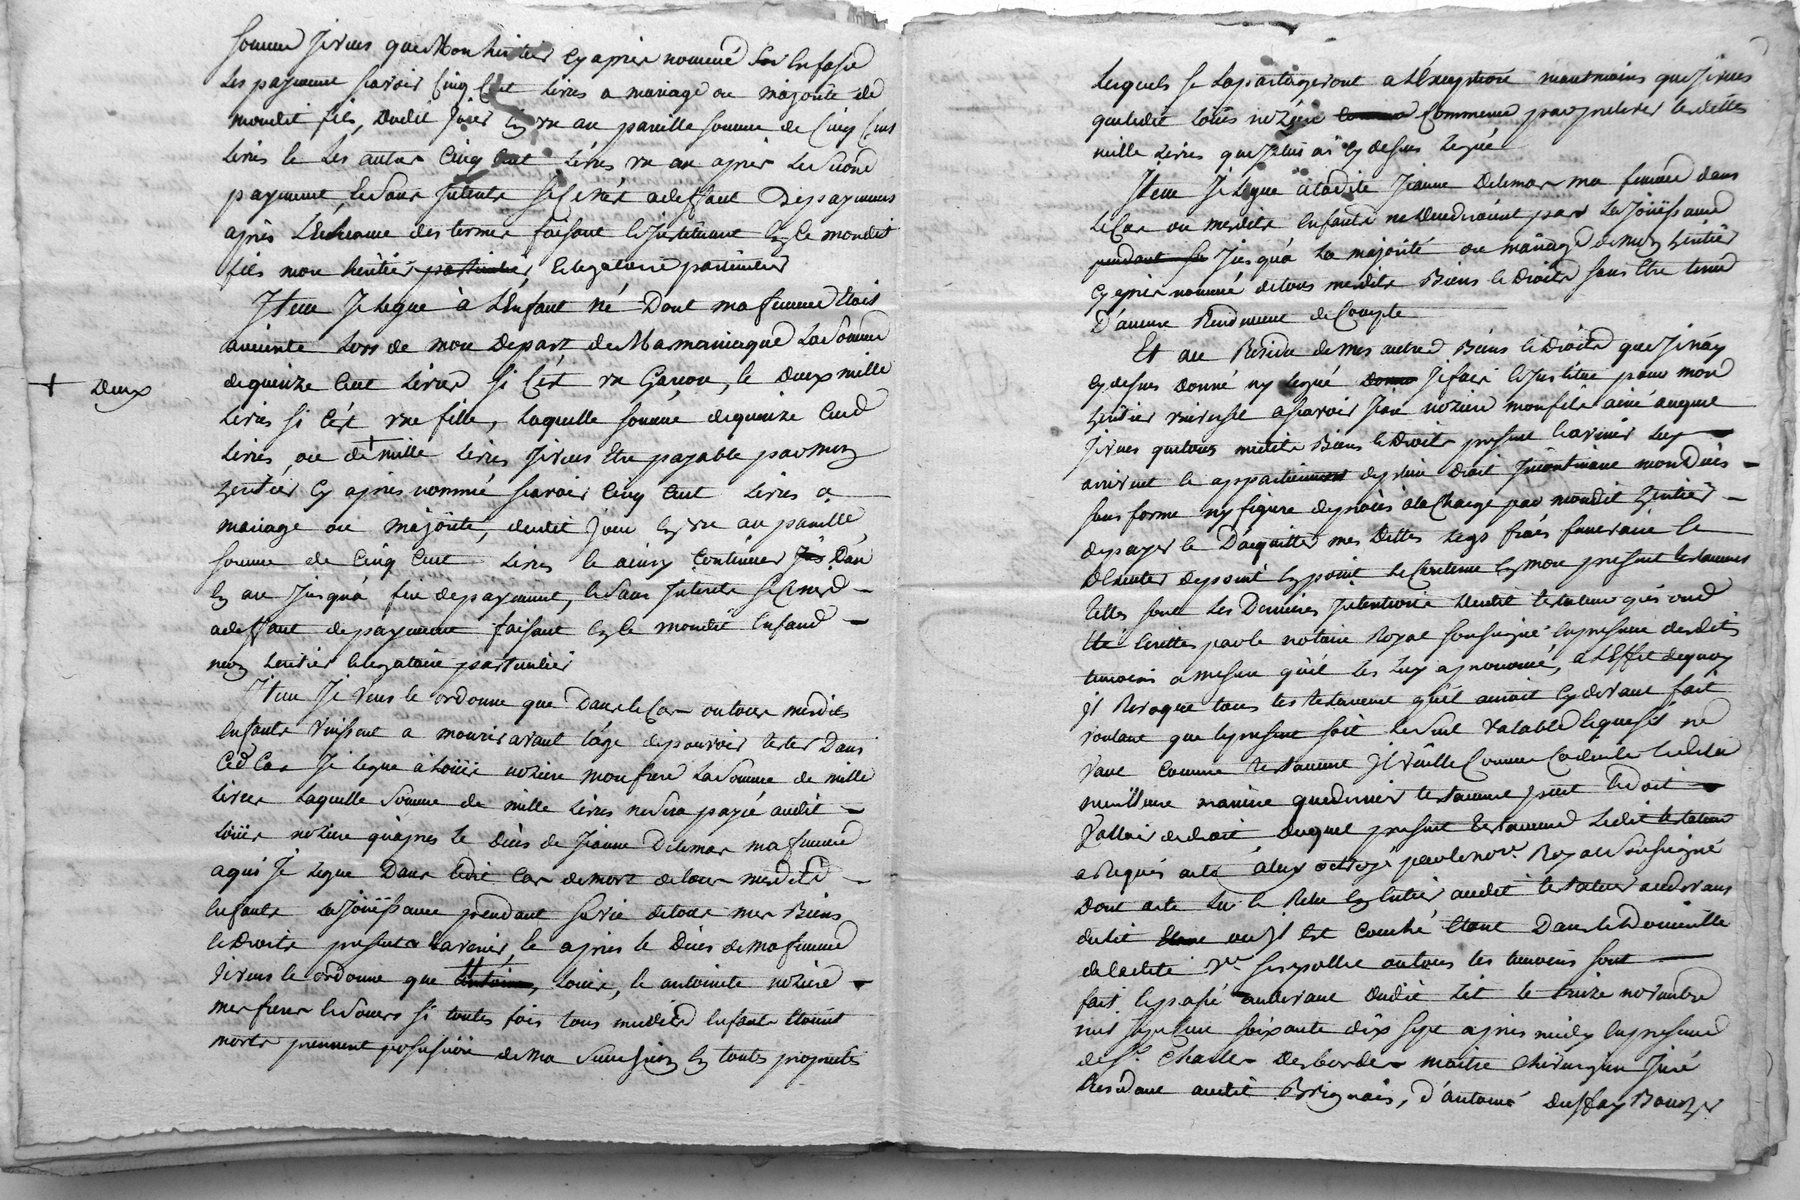 somme je veux que Mon heritier cy apres nommé en fasse
les payement scavoir cinq Cent livres a mariage ou majorité de
mondit fils, dudit jour en un an pareille somme de Cinq Cens
livres et les autres Cinq Cent livres un an apres le second
payement, et sans interets si ce n'est a deffaut de payemens
après l'Echeance des termes faisant et instituant en ce mondit
fils mon heritier particulier et legataire particulier
Item Je legue à l'Enfant né Dont ma femme Etoit
enceinte lors de mon depart de la Somme
de quinze Cent livres si C'est un Garcon, et Deux mille
+ Deux
livres si c'est une fille, laquelle somme de quinze Cend
livres, ou de + mille livres je veux Etre payable par mon
heritier cy après nommé scavoir cinq Cent livres a
mariage ou majorité, dudit jour en un an pareille
somme de Cinq Cent livres et ainsy continuer D'an
en an jusqu'à fin de payement, et sans interets si ce n'est
a deffaut de payement faisant en ce mondit Enfand
mon heritier et legataire particulier
Item Je veux et ordonne que Dans le Cas ou tous mesdits
enfants vinssent a mourir avant l'âge de pouvoir tester Dans
Ced Cas Je legue à Loüis noziere mon frere la Somme de mille
livres laquelle Somme de mille livres ne sera payé audit
Loüis noziere qu'apres le Décès de Jeanne Delemar ma femme
a qui Je legue Dans ledit Cas de mort de tous mesdits
Enfants la Joüissance pendant sa vie de tous mes Biens
et Droits present et avenir, et apres le Décès de ma femme
Je veux et ordonne que Antoine, Louis, et antoinete noziere
mes freres et soeurs si toutes fois tous mesdits Enfants Etoient
morts prennent possession de ma Succession en toute proprieté
lesquels se la partageront a L'Exception neantmoins que Je veux
que ledit Loüis noziere comme Commence par prelever lesdittes
mille livres que Je luy ai cy dessus legué
Item Je legue à ladite Jeanne Delemar ma femme dans
le Cas ou mesdits Enfants ne viendroient pas la Joüissance
pendant sa Jusqu'à la majorité ou mariage de mon heritier
cy apres nommé de tous mesdits Biens et Droits sans Etre tenue
D'aucun Rendement de Compte
Et au Residu de mes autres Biens et Droits que Je n'ay
cy dessus donné ny legué Donne Je fais et institue pour mon
heritier universel a scavoir Jean noziere mon fils ainé auquel
Je veux que tous mesdits Biens et Droits present et avenir luy
arrivent et appartiennent de plein Droit Incontinant mon Décès
sans forme ny figure de procès a la Charge par mondit heritier
de payer et D'acquitter mes Dettes legs frais funeraire et
D'Executer de point en point le Contenu en mon present testament
telles sont les Dernieres Intentions dudit testateur qui ond
Eté Ecrittes par le notaire Royal soussigné en presence desdits
temoins a mesure qu'il les luy a prononcé, a L'Effet dequoy
il Revoque tous les testament qu'il auroit cy devant fait
voulant que le present soit le seul valable et que s'il ne
vaut comme testament il vaille Comme Codicille et de la
meilleure maniere que dernier testament peut et doit
valloir de droit duquel present testament ledit testateur
a Requis acte à luy octroyé par le nore. Royal soussigné
Dont acte lu et Relu en Entier audit testateur au devant
dudit Etant ou il est Couché Etant Dans le Domicille
de ladite ve. ou tous les temoins sont
fait et passé au devant Dudit lit le treize novembre
mil sept cent soixante dix sept apres midy en presence
de Sr. Charles Desbordes maitre Chirurgien Juré
Residant audit Brignais, d'antoine